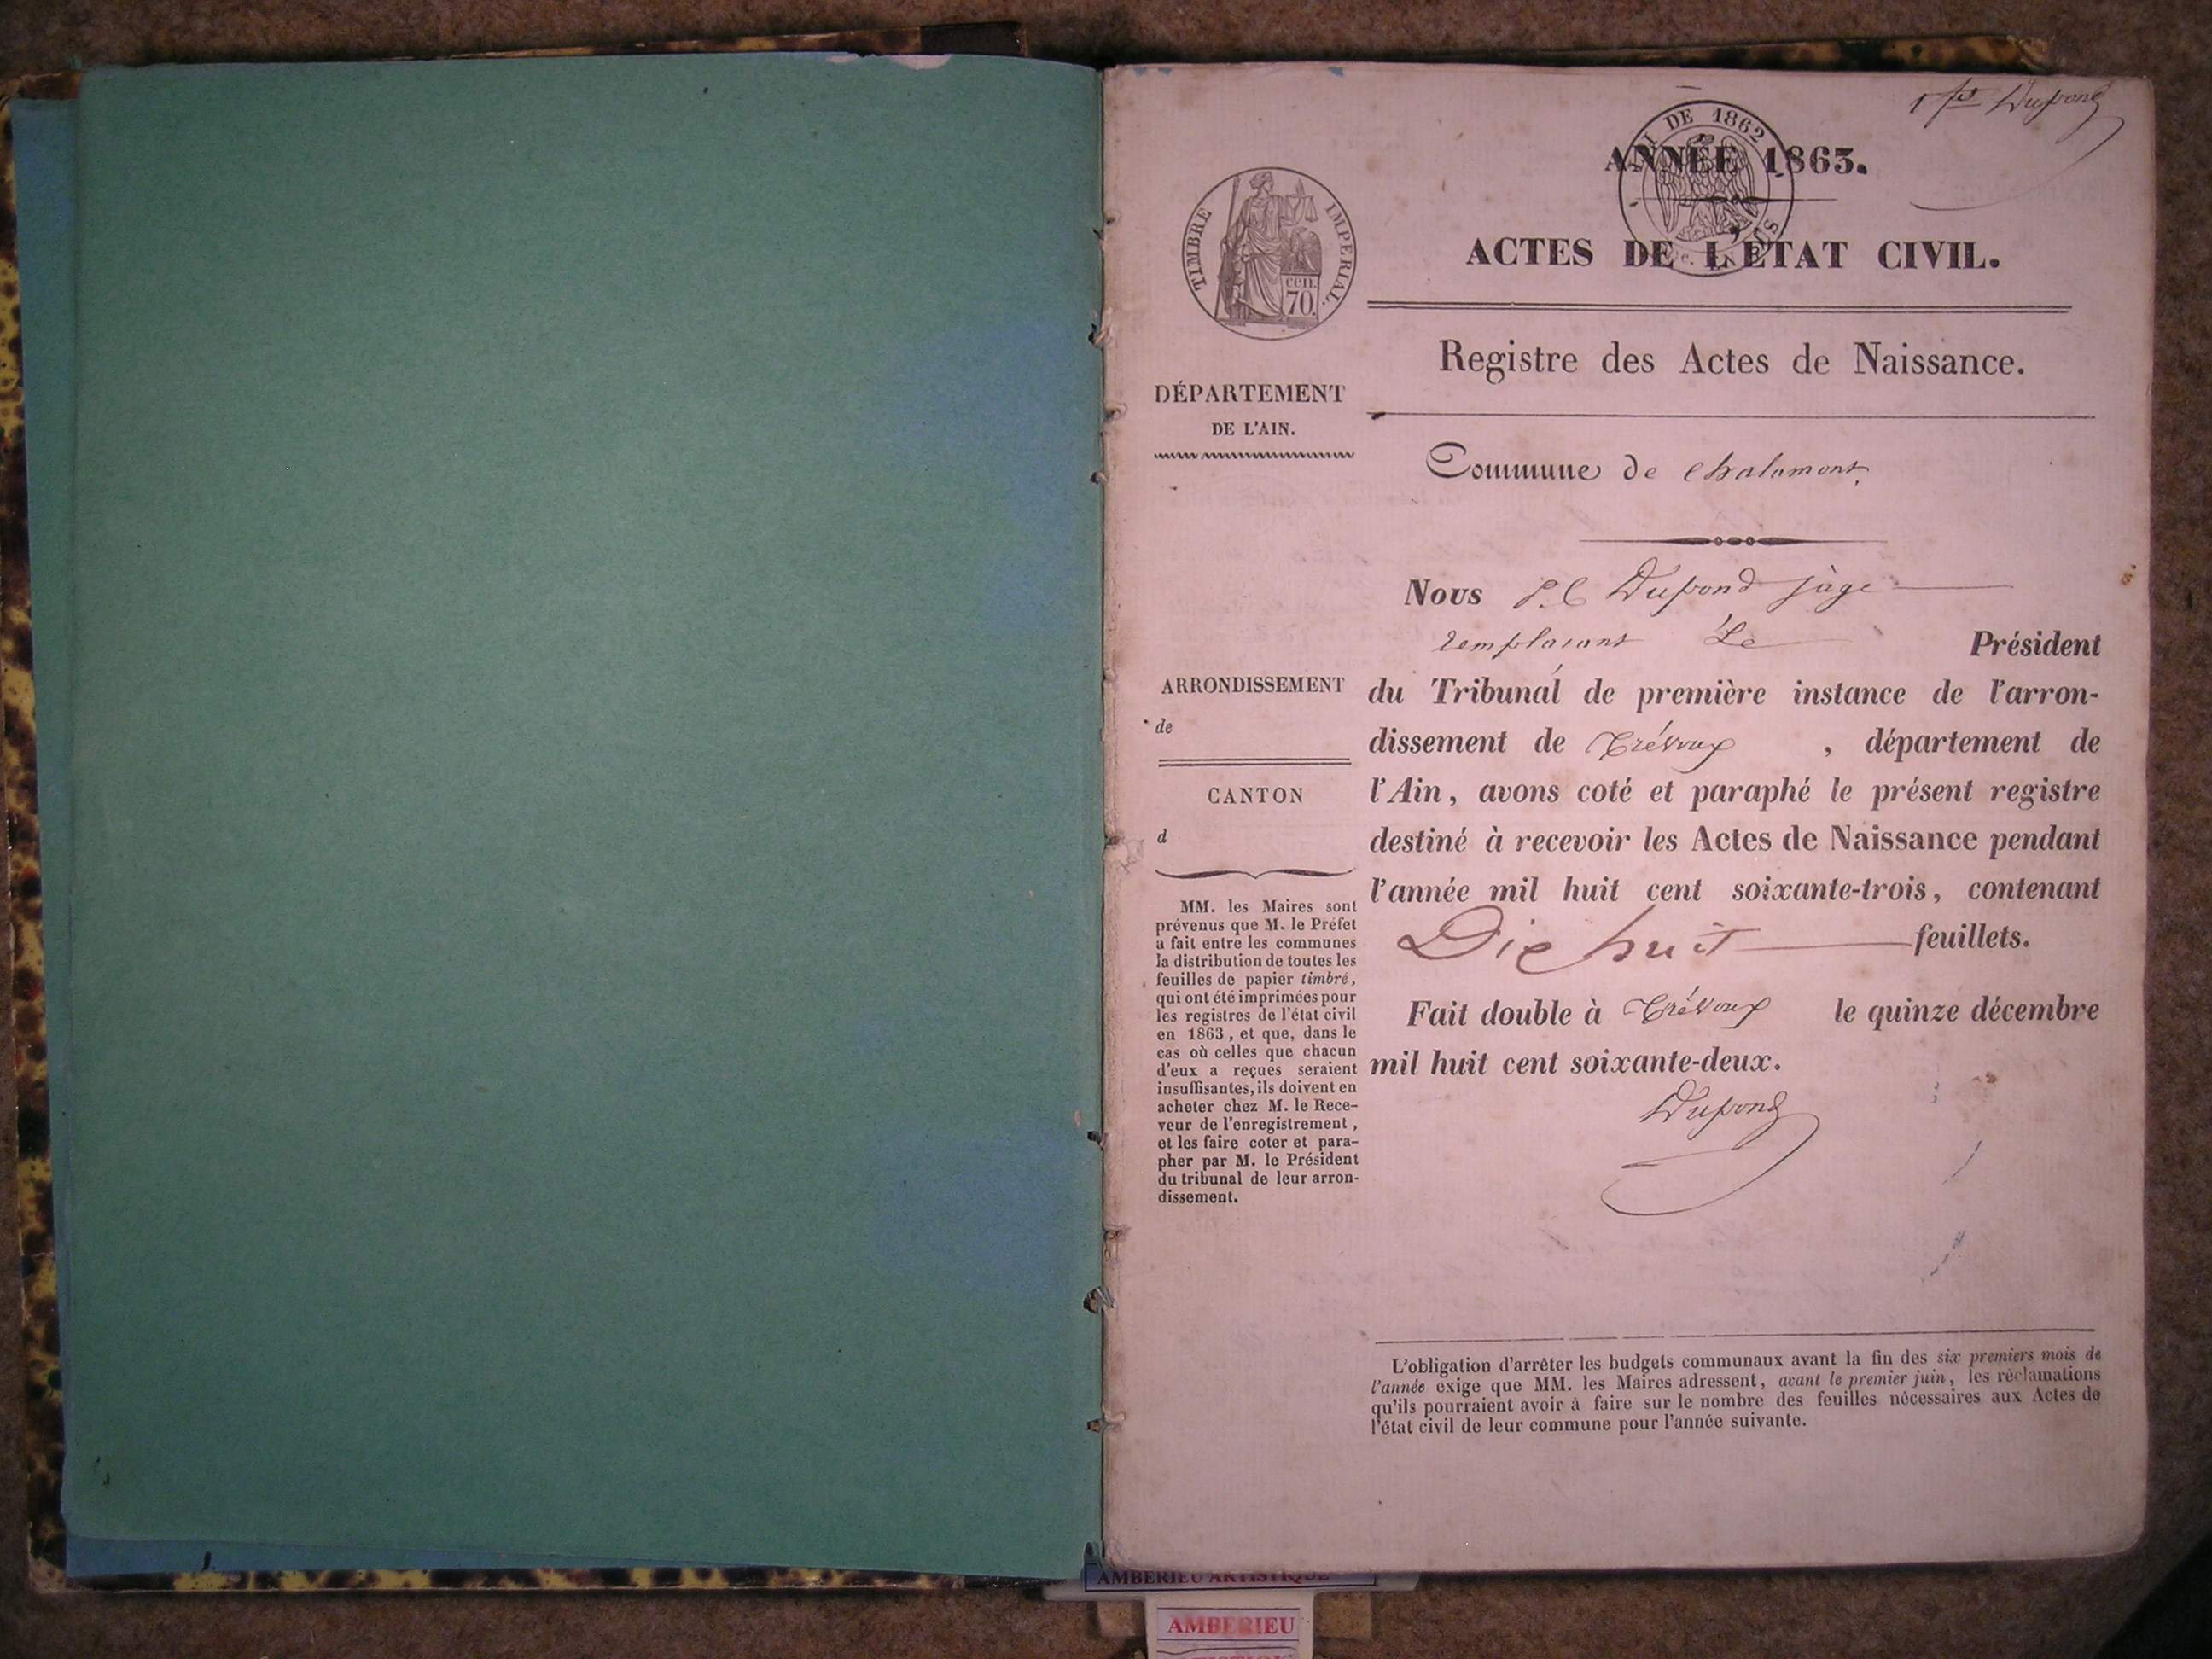 1er Dupond
LOI DE 1862
ANNÉE 1863.
TIMBRE IMPERIAL.
cen.
70.
ACTES DE L'ÉTAT CIVIL.
Registre des Actes de Naissance.
DÉPARTEMENT
DE L'AIN.
Commune de Chalamont
Nous Dupond juge
remplacant Le Président
ARRONDISSEMENT
de
CANTON
d
du Tribunal de première instance de l'arron-
dissement de Trévoux , département de
l'Ain, avons coté et paraphé le présent registre
destiné à recevoir les Actes de Naissance pendant
l'année mil huit cent soixante-trois, contenant
Dix huit feuillets.
Fait double à Trévoux le quinze décembre
mil huit cent soixante-deux.
Dupond
MM. les Maires sont
prévenus que M. le Préfet
a fait entre les communes
la distribution de toutes les
feuilles de papier timbré,
qui ont été imprimées pour
les registres de l'état civil
en 1863, et que, dans le
cas où celles que chacun
d'eux a reçues seraient
insuffisantes, ils doivent en
acheter chez M. le Rece-
veur de l'enregistrement,
et les faire coter et para-
pher par M. le Président
du tribunal de leur arron-
dissement.
L'obligation d'arrêter les budgets communaux avant la fin des six premiers mois de
l'année exige que MM. les Maires adressent, avant le premier juin, les réclamations
qu'ils pourraient avoir à faire sur le nombre des feuilles nécessaires aux Actes de
l'état civil de leur commune pour l'année suivante.
AMBERIEU ARTISTIQUE
AMBERIEU